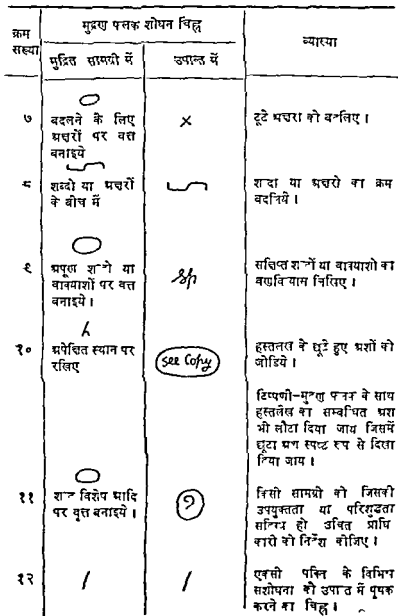 क्रम
संख्या
मुद्रण फलक शोधन चिह्न
मुद्रित सामग्री में
उपान्त में
व्याख्या
७
बदलने के लिए
अक्षरों पर वृत्त
बनाइये
×
टूटे अक्षरों को बदलिए ।
८
शब्दो या अक्षरों
के बीच में
शब्दों या अक्षरो का क्रम
बदलिये ।
९
अपूर्ण शब्दों या
वाक्याशों पर वृत्त
बनाइये ।
Sp
सक्षिप्त शब्दों या वाक्याशो का
वर्णविन्यास लिखिए ।
१०
अपेक्षित स्थान पर
रखिए
see Copy
हस्तलेख के छूटे हुए अशों को
जोडिये ।
टिप्पणी–मुद्रण फलक के साथ
हस्तलेख का सम्बधित अश
भी लौटा दिया जाय जिसमें
छूटा अश स्पष्ट रूप से दिखा
दिया जाय ।
११
शब्द विशेष आदि
पर वृत्त बनाइये ।
?
किसी सामग्री को जिसकी
उपयुक्तता या परिशुद्धता
सन्दिग्ध हो उचित प्राधि
कारी को निर्देश कीजिए ।
१२
/
/
एक ही पंक्ति के विभिन्न
सशोधना को उपान्त में पृथक
करने का चिह्न ।